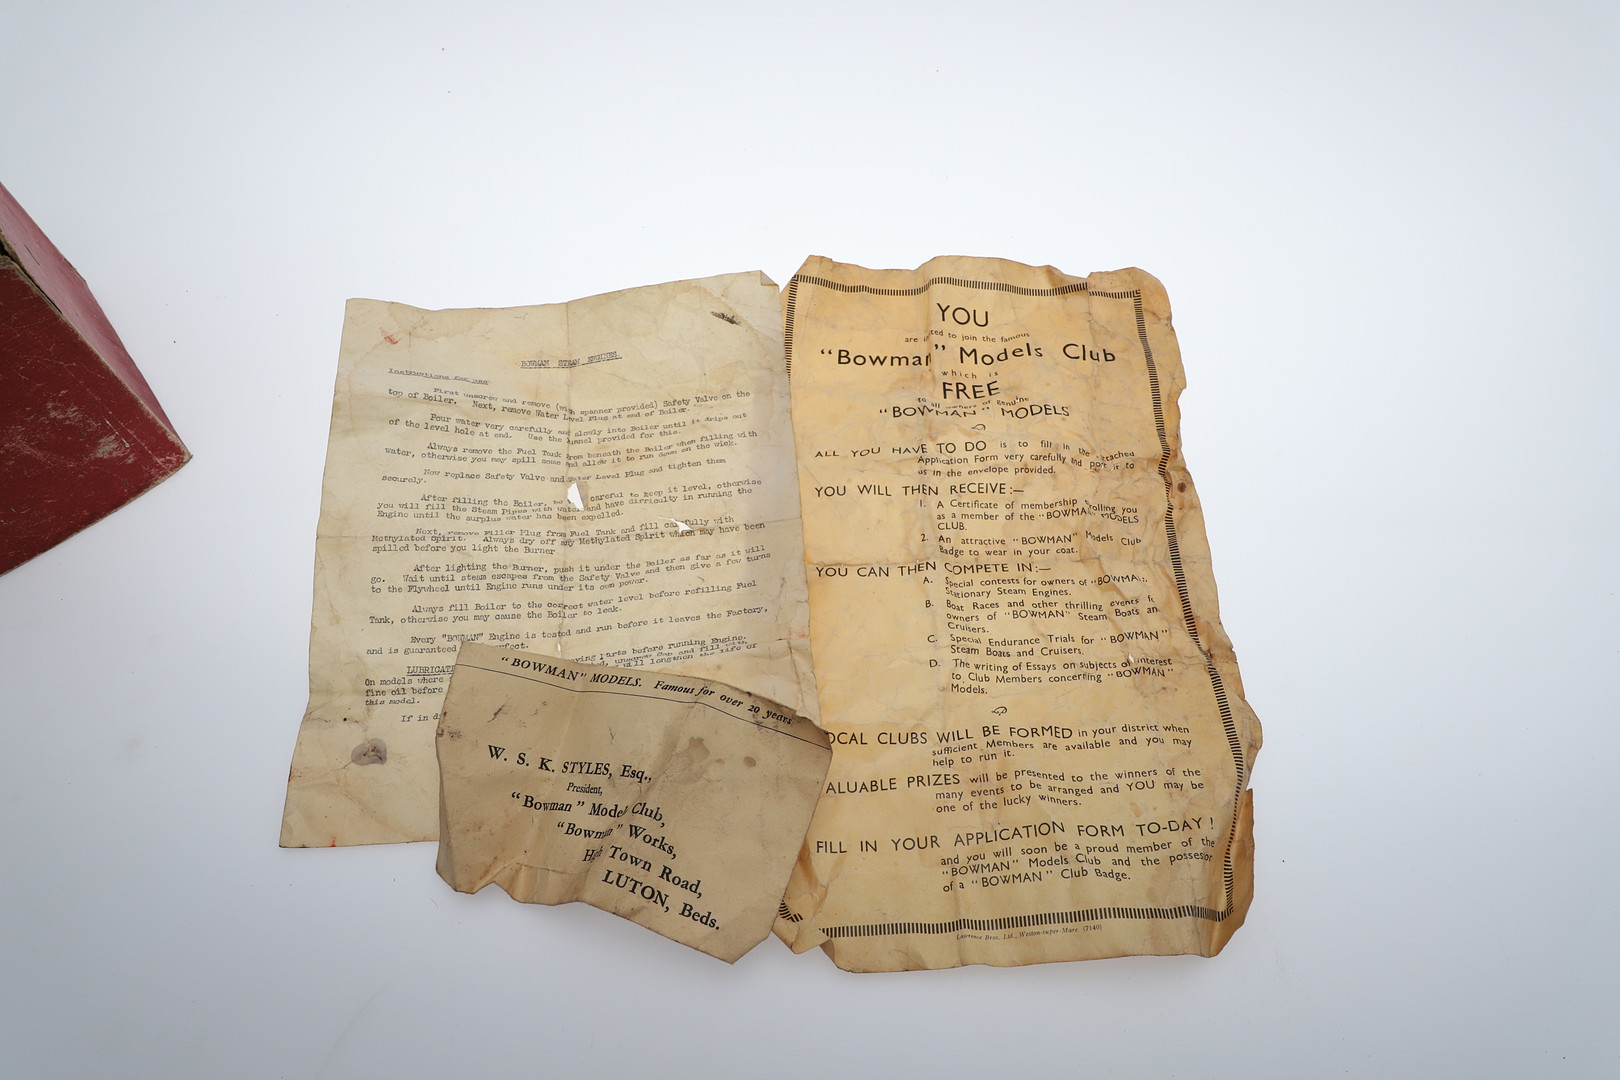 BOWMAN STEAM ENGINES
Instructions for use
First unscrew and remove (with spanner provided) Safety Valve on the
top of Boiler. Next, remove Water Level Plug at end of Boiler.
Pour water very carefully and slowly into Boiler until it drips out
of the level hole at end. Use the funnel provided for this.
Always remove the Fuel Tank from beneath the Boiler when filling with
water, otherwise you may spill some and allow it to run down on the wick.
Now replace Safety Valve and Water Level Plug and tighten them
securely.
After filling the Boiler, be careful to keep it level, otherwise
you will fill the Steam Pipes with water and have difficulty in running the
Engine until the surplus water has been expelled.
Next, remove Filler Plug from Fuel Tank and fill carefully with
Methylated Spirit. Always dry off any Methylated Spirit which may have been
spilled before you light the Burner
After lighting the Burner, push it under the Boiler as far as it will
go. Wait until steam escapes from the Safety Valve and then give a few turns
to the Flywheel until Engine runs under its own power.
Always fill Boiler to the correct water level before refilling Fuel
Tank, otherwise you may cause the Boiler to leak.
Every "BOWMAN" Engine is tested and run before it leaves the Factory,
and is guaranteed perfect.
LUBRICAT ving parts before running Engine.
On models where ed, unscrew Cap and fill with
fine oil before will lengthen the life of
this model.
If in d
"BOWMAN" MODELS. Famous for over 20 years
W. S. K. STYLES, Esq.,
President,
"Bowman" Model Club,
"Bowman" Works,
High Town Road,
LUTON, Beds.
YOU
are ited to join the famous
"Bowman" Models Club
which is
FREE
to all owners of genuine
"BOWMAN" MODELS
ALL YOU HAVE TO DO is to fill in the attached
Application Form very carefully and post it to
us in the envelope provided.
YOU WILL THEN RECEIVE:—
1. A Certificate of membership enrolling you
as a member of the "BOWMAN" MODELS
CLUB.
2. An attractive "BOWMAN" Models Club
Badge to wear in your coat.
YOU CAN THEN COMPETE IN:—
A. Special contests for owners of "BOWMAN"
Stationary Steam Engines.
B. Boat Races and other thrilling events f
owners of "BOWMAN" Steam Boats an
Cruisers.
C. Special Endurance Trials for "BOWMAN"
Steam Boats and Cruisers.
D. The writing of Essays on subjects of interest
to Club Members concerning "BOWMAN"
Models.
OCAL CLUBS WILL BE FORMED in your district when
sufficient Members are available and you may
help to run it.
ALUABLE PRIZES will be presented to the winners of the
many events to be arranged and YOU may be
one of the lucky winners.
FILL IN YOUR APPLICATION FORM TO-DAY!
and you will soon be a proud member of the
"BOWMAN" Models Club and the possesor
of a "BOWMAN" Club Badge.
Lawrence Bros. Ltd., Weston-super-Mare (7140)